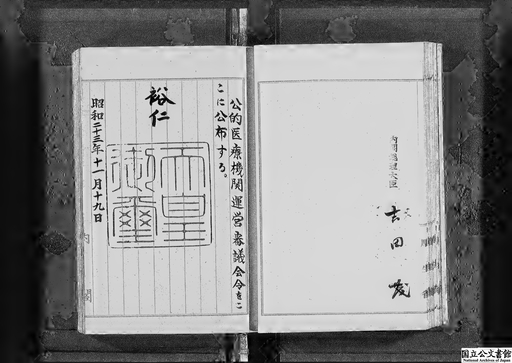 内閣総理大臣
吉田茂
公的医療機関運営審議会令をこ
こに公布する。
裕仁
天皇
御璽
昭和二十三年十一月十九日
内閣
国立公文書館
National Archives of Japan